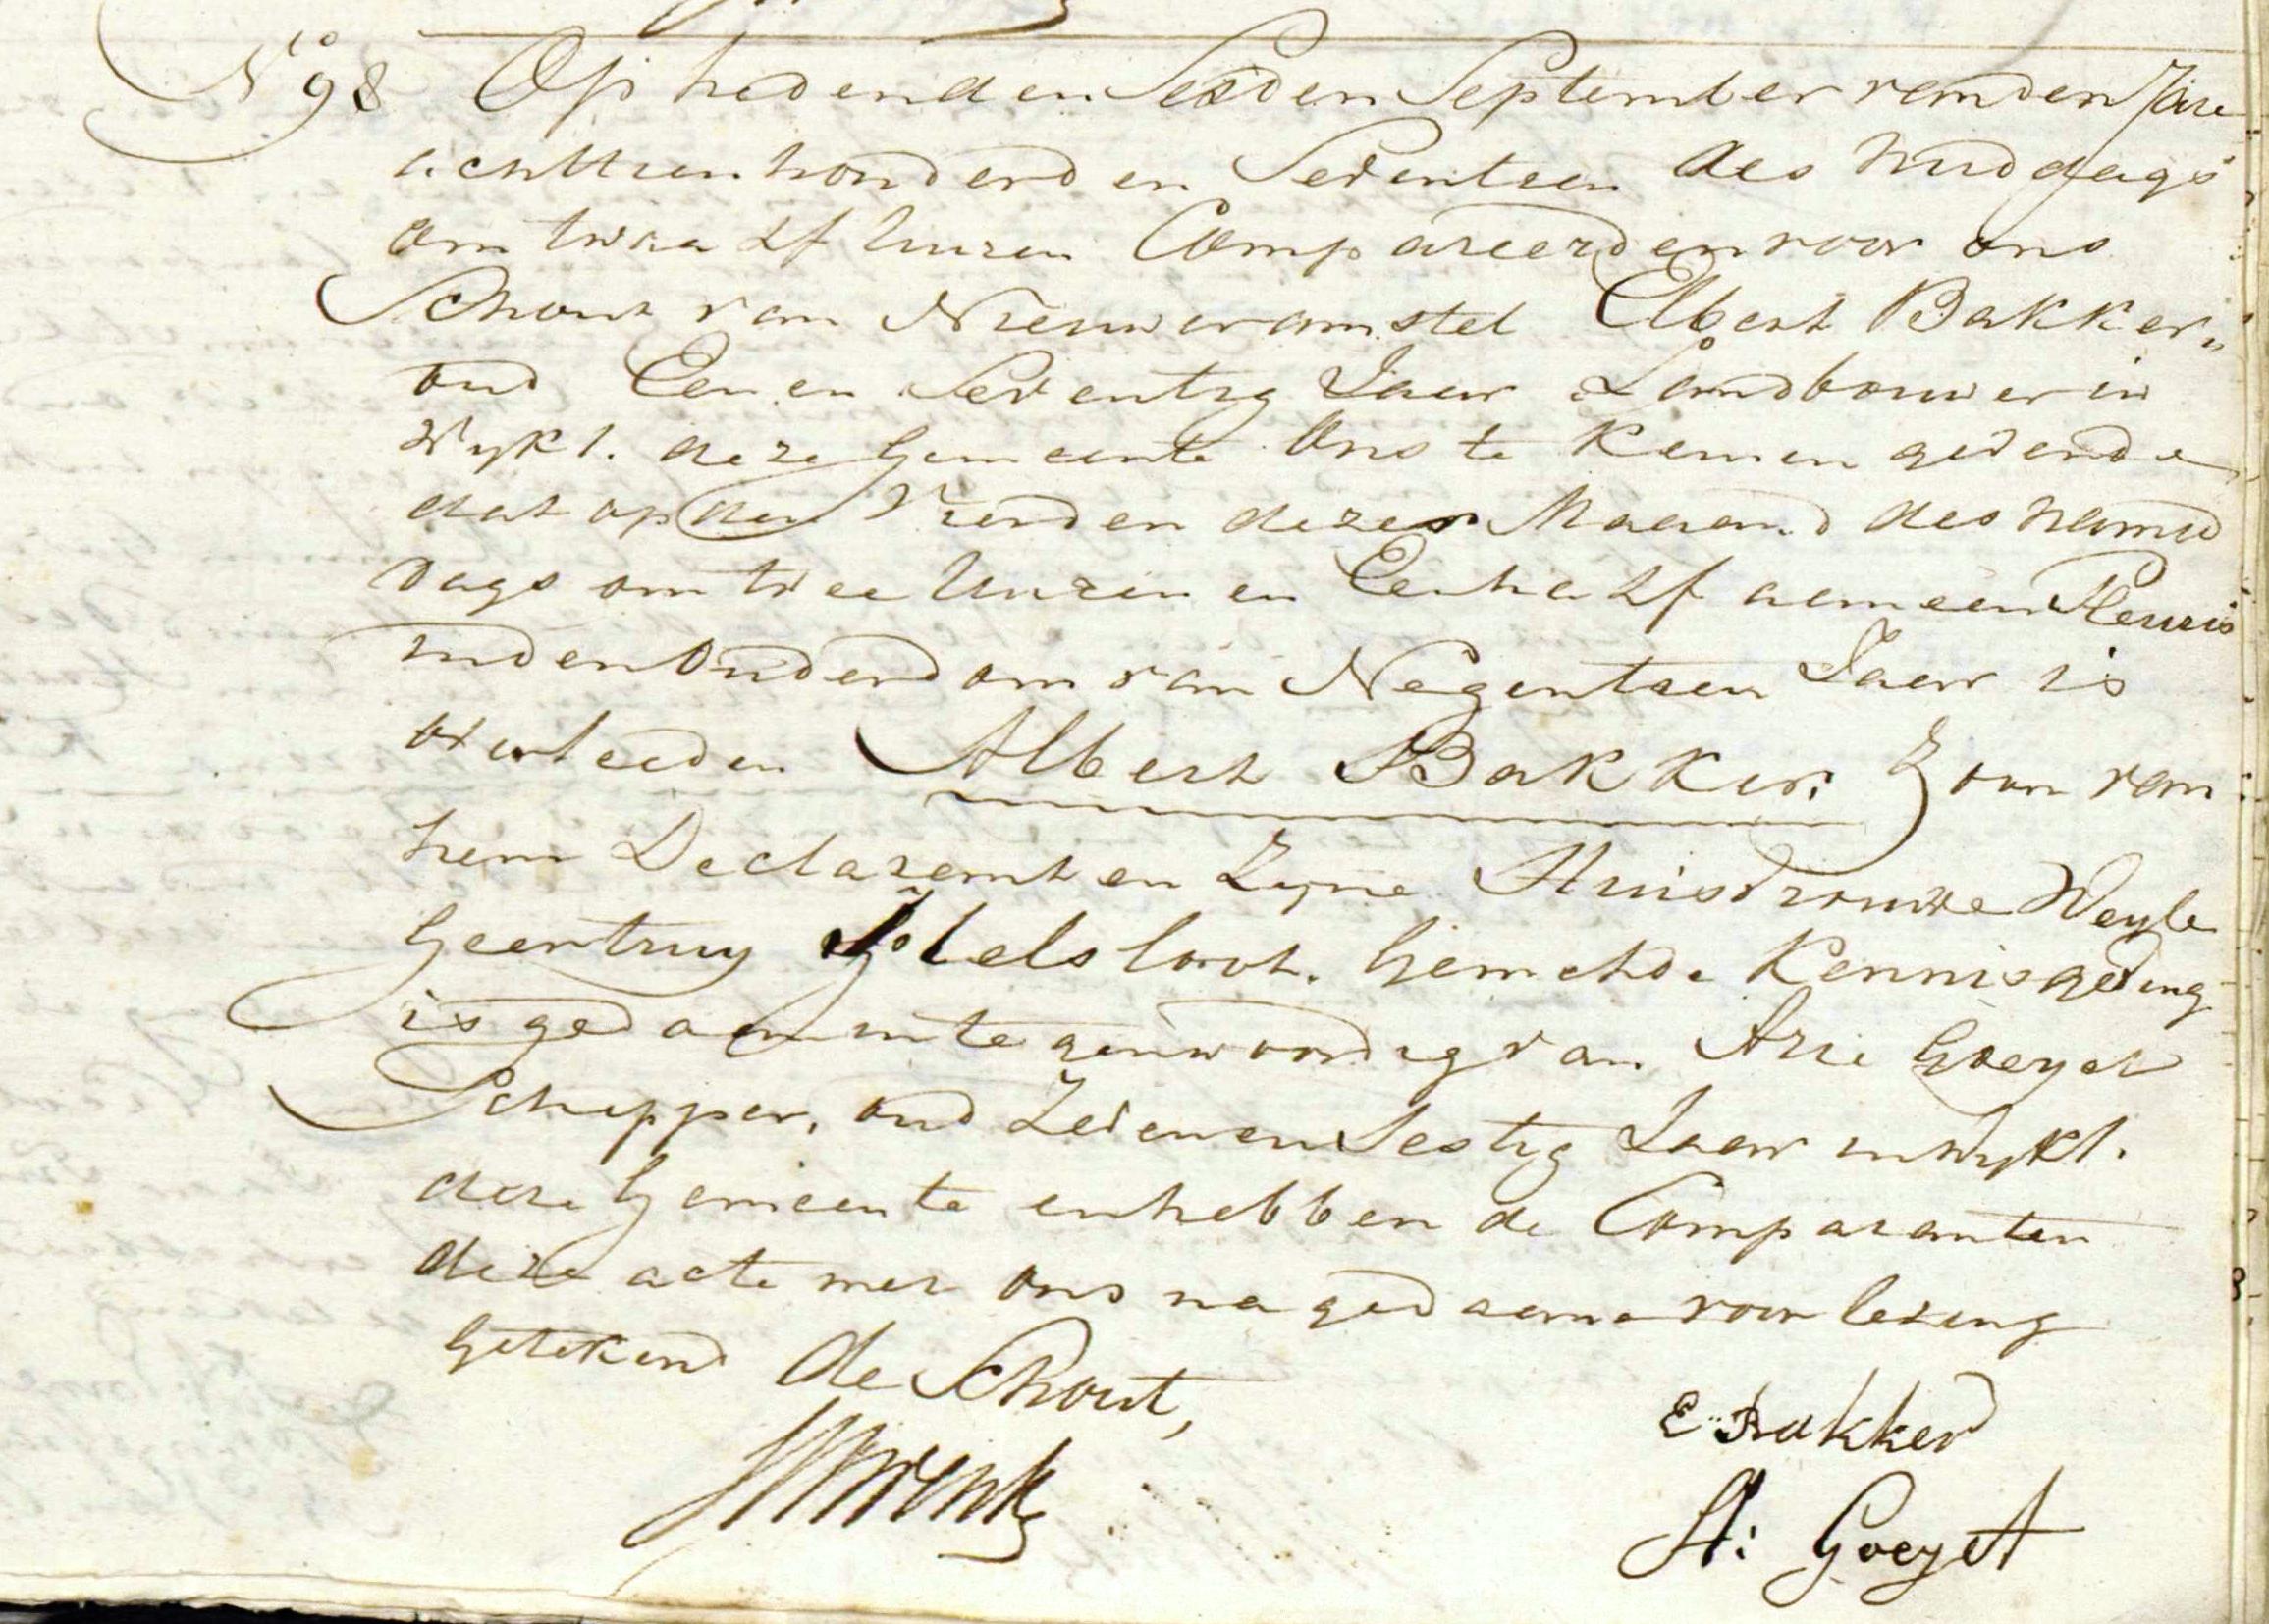 No 98 Op heden den Sesden September van den Jare
achttien honderd en Seventien des Middags
om twaalf Uuren Compareerden voor ons
Schout van Nieuwer amstel Elbert Bakker„
oud Een en Seventig Jaar Landbouwer in
Wyk 1. deze Gemeente Ons te kennen gevende
dat op den Vierden dezer Maand des namid
dags om twee Uuren en Een half aan een Huis
in den Ouderdom van Negentien Jaar is
overleeden Albert Bakker. Zoon van
hem Declarant en Zyne Huisvrouwe Weyle
Geertruy loot. Gemelde Kennisgeving
is gedaan in tegenwoordig van Arie Goeyet
Schipper, oud Zeven en Sestig Jaar in Wyk 1.
deze Gemeente en hebben de Comparanten
deze acte met ons na gedaane voorlezing
Getekend de Schout,
E. Bakker
A: Goeyet